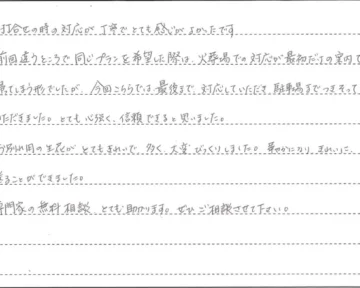 打合せの時の対応が丁寧でとても感じがよかったです
前回違うところで同じプランを希望した際は、火葬場での対応が最初だけの案内で
帰てしまう形でしたが、今回こちらでは最後まで対応していただき、駐車場までつきそって
いただきました。とても心強く、信頼できると思いました。
お別れ用の生花がとてもきれいで多く、大変びっくりしました。華やかになり、きれいに
送ることができました。
専門家の無料相談とても助かります。ぜひご相談させて下さい。